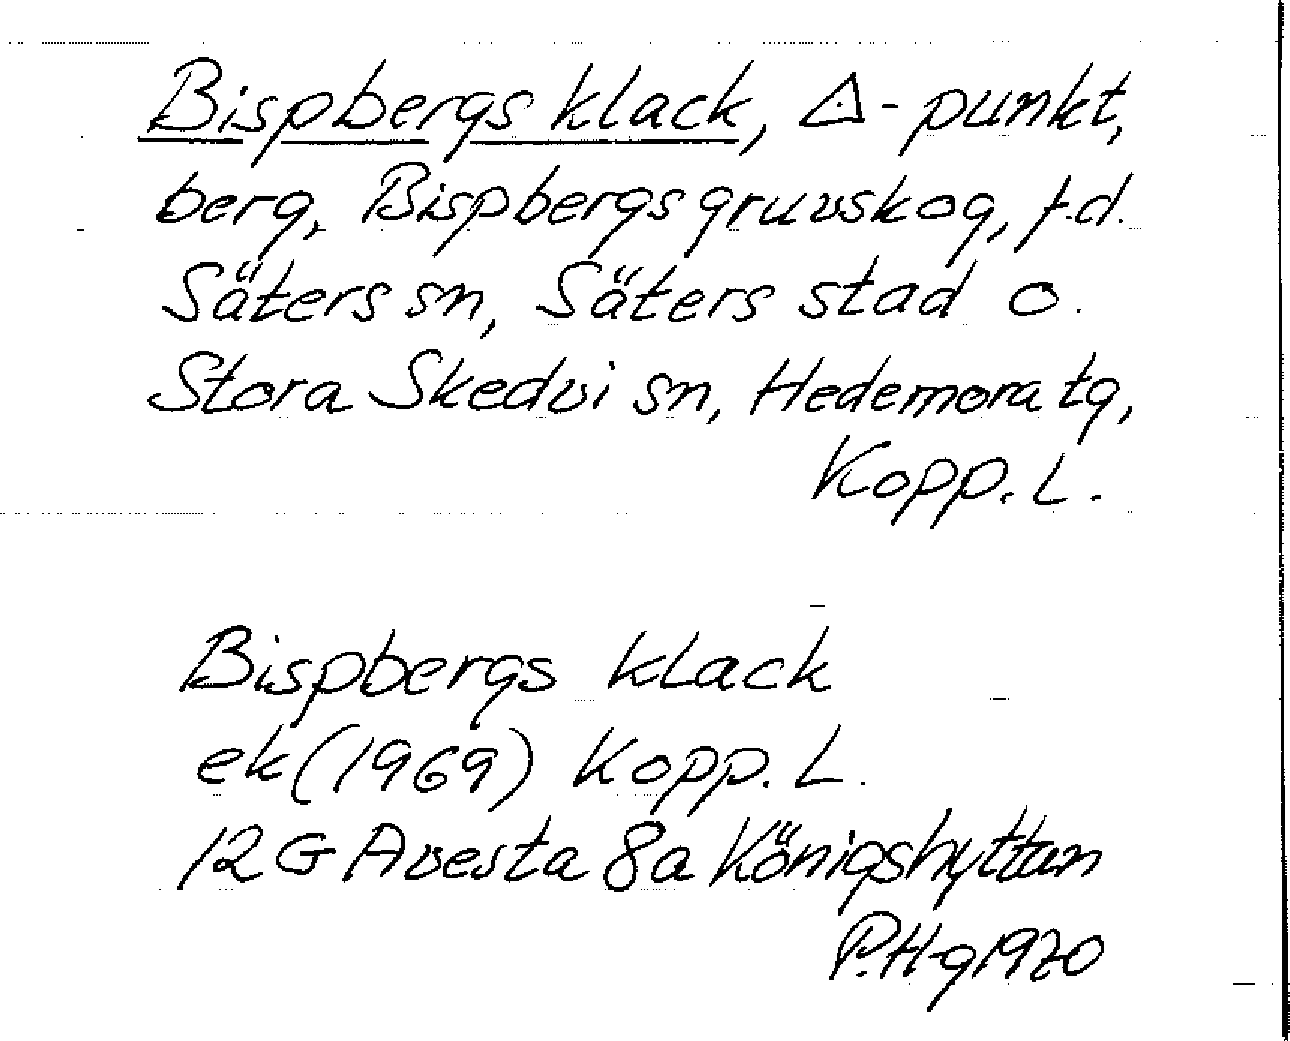 Bispbergs klack, △-punkt,
berg, Bispbergs gruvskog, f.d.
Säters sn, Säters stad o.
Stora Skedvi sn, Hedemora tg,
Kopp. L.
Bispbergs klack
ek (1969) Kopp. L.
12 G Avesta 8a Königshyttan
P.H-g 1970